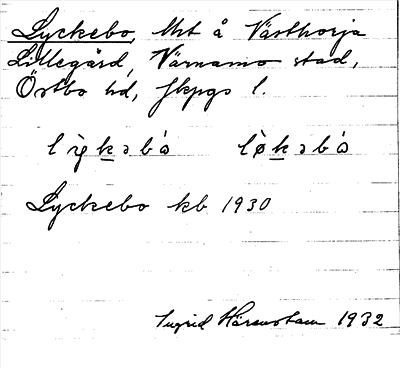 Lyckebo, lht å Västhorja
Lillegård, Värnamo stad,
Östbo hd, Jkpgs l.
lỳkəbó lø̀kəbó
Lyckebo kb 1930
Ingrid 1932